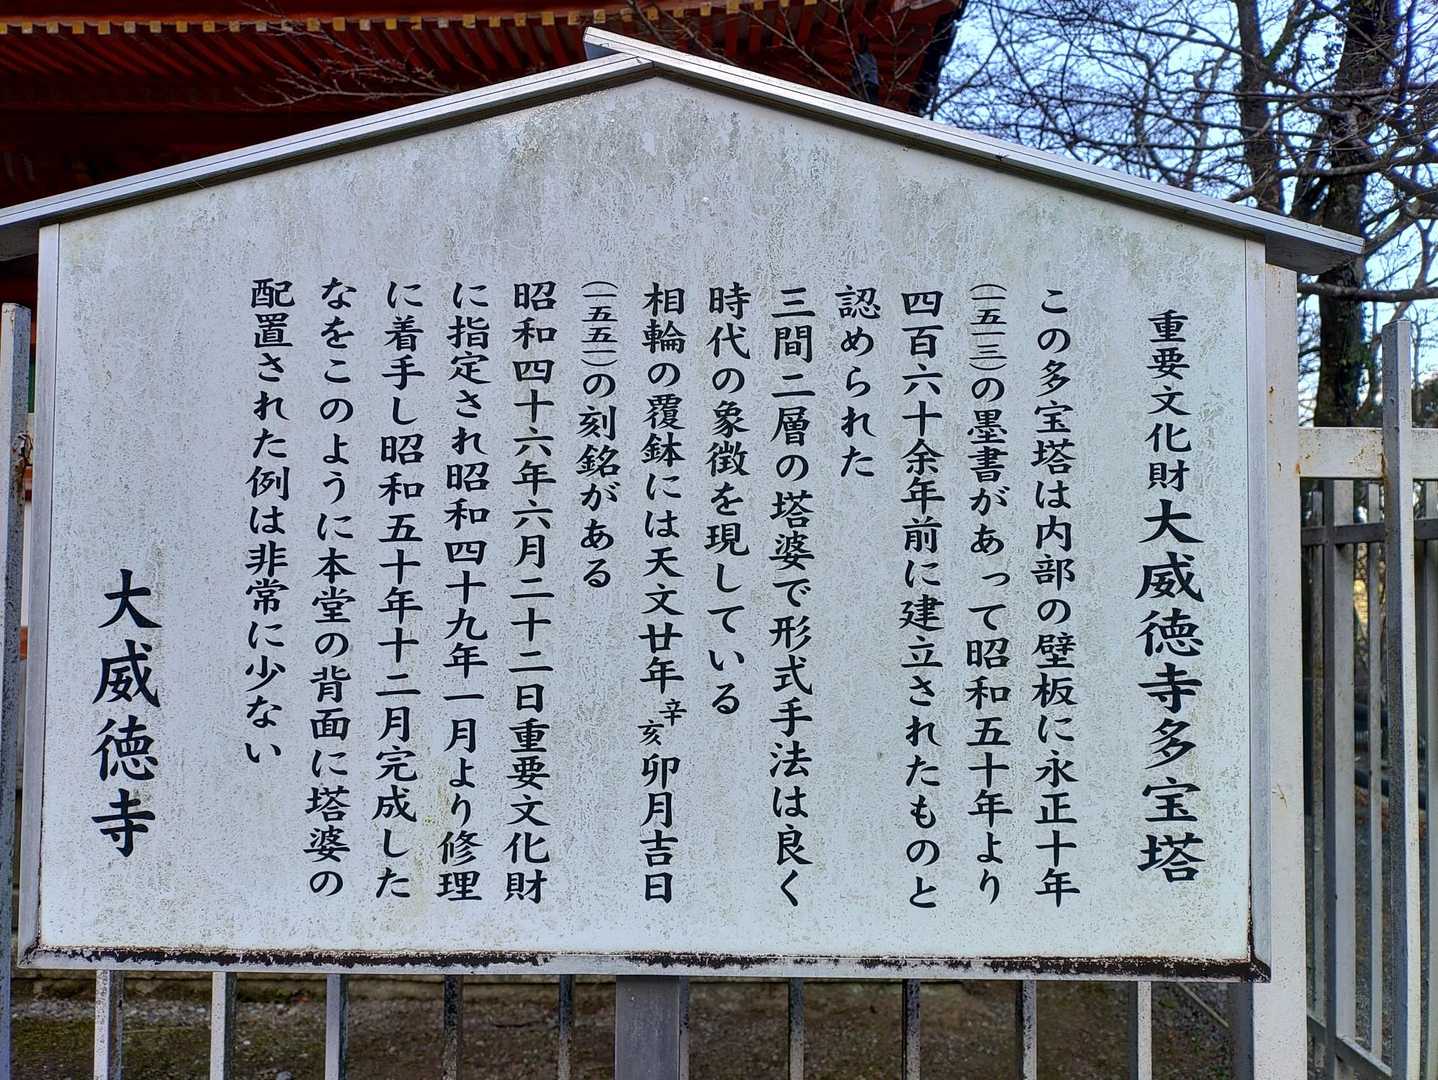 重要文化財大威徳寺多宝塔
この多宝塔は内部の壁板に永正十年
(一五一三)の墨書があって昭和五十年より
四百六十余年前に建立されたものと
認められた
三間二層の塔婆で形式手法は良く
時代の象徴を現している
相輪の覆鉢には天文廿年辛亥卯月吉日
(一五五一)の刻銘がある
昭和四十六年六月二十二日重要文化財
に指定され昭和四十九年一月より修理
に着手し昭和五十年十二月完成した
なをこのように本堂の背面に塔婆の
配置された例は非常に少ない
大威徳寺